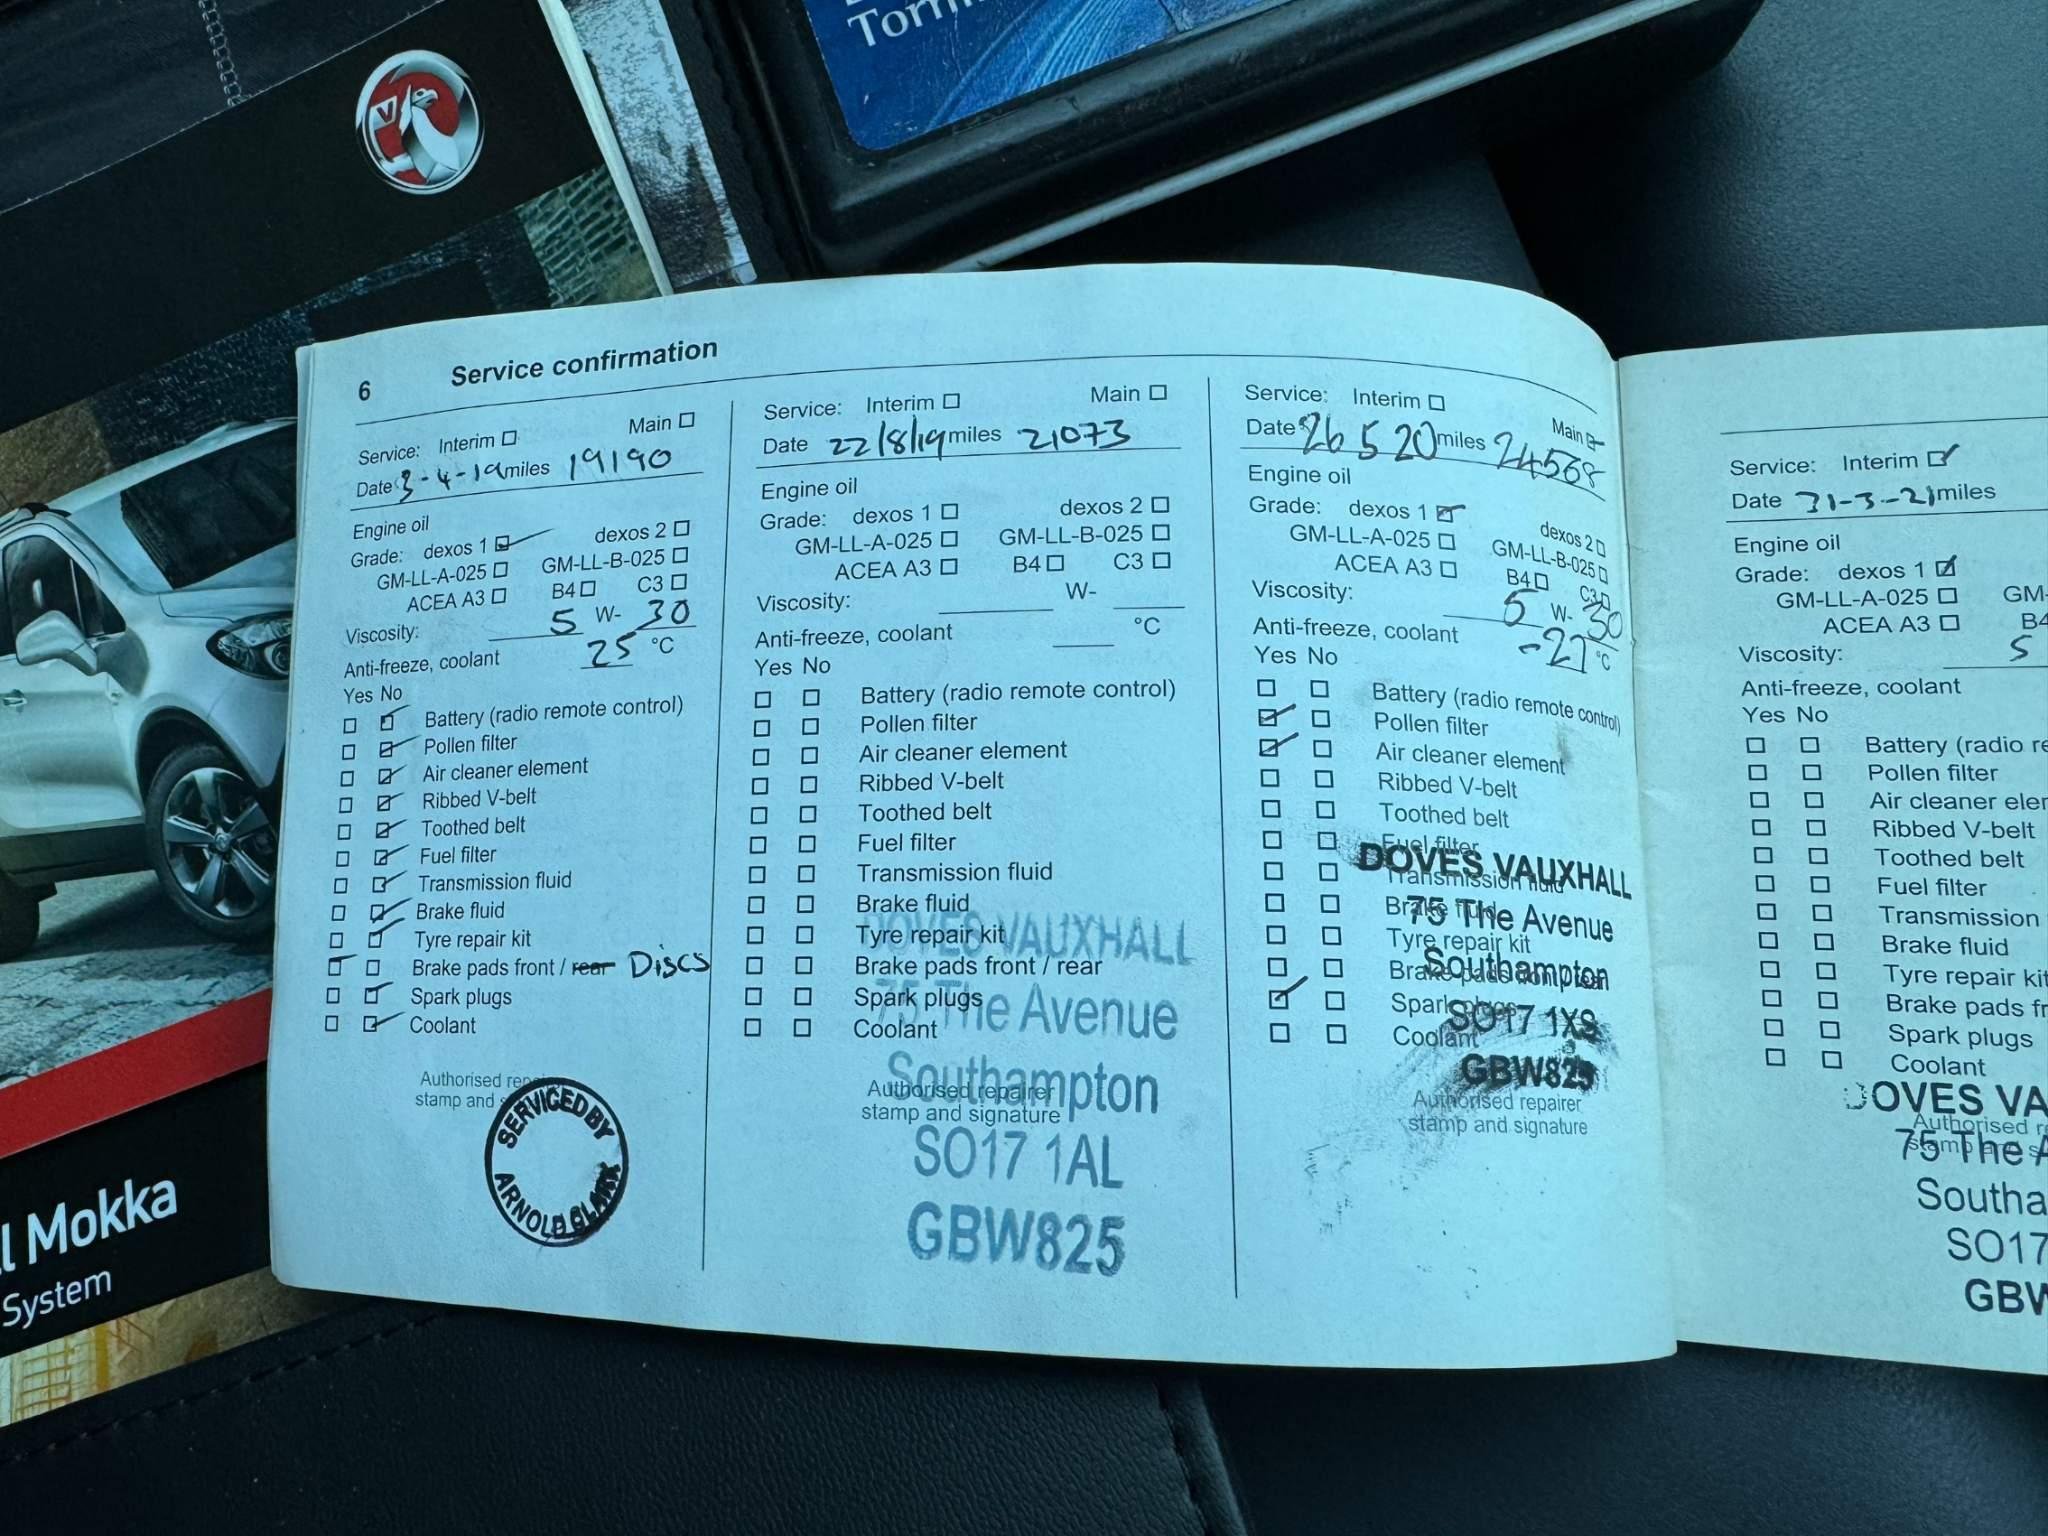 Torn
6 Service confirmation
Service: Interim Main
Date 3-4-19 miles 19190
Engine oil
Grade: dexos 1 dexos 2
GM-LL-A-025 GM-LL-B-025
ACEA A3 B4 C3
Viscosity: 5 W- 30
Anti-freeze, coolant 25 °C
Yes No
Battery (radio remote control)
Pollen filter
Air cleaner element
Ribbed V-belt
Toothed belt
Fuel filter
Transmission fluid
Brake fluid
Tyre repair kit
Brake pads front / rear Discs
Spark plugs
Coolant
Authorised
stamp and
SERVICED BY
ARNOLD CLARK
Service: Interim Main
Date 22/8/19 miles 21073
Engine oil
Grade: dexos 1 dexos 2
GM-LL-A-025 GM-LL-B-025
ACEA A3 B4 C3
Viscosity: W-
Anti-freeze, coolant °C
Yes No
Battery (radio remote control)
Pollen filter
Air cleaner element
Ribbed V-belt
Toothed belt
Fuel filter
Transmission fluid
Brake fluid
Tyre repair kit
Brake pads front / rear
Spark plugs
Coolant
Authorised repairer
stamp and signature
DOVES VAUXHALL
75 The Avenue
Southampton
SO17 1AL
GBW825
Service: Interim Main
Date 26 5 20 miles 24568
Engine oil
Grade: dexos 1 dexos 2
GM-LL-A-025 GM-LL-B-025
ACEA A3 B4 C3
Viscosity: 5 W- 30
Anti-freeze, coolant -27 °C
Yes No
Battery (radio remote control)
Pollen filter
Air cleaner element
Ribbed V-belt
Toothed belt
Fuel filter
Transmission fluid
Brake fluid
Tyre repair kit
Brake pads front / rear
Spark plugs
Coolant
DOVES VAUXHALL
75 The Avenue
Southampton
SO17 1XS
GBW825
Authorised repairer
stamp and signature
Service: Interim
Date 31-3-21 miles
Engine oil
Grade: dexos 1
GM-LL-A-025 GM-
ACEA A3 B4
Viscosity: 5
Anti-freeze, coolant
Yes No
Battery (radio re
Pollen filter
Air cleaner eler
Ribbed V-belt
Toothed belt
Fuel filter
Transmission
Brake fluid
Tyre repair kit
Brake pads fr
Spark plugs
Coolant
DOVES VA
Authorised r
75 The A
Southa
SO17
GBW
l Mokka
System